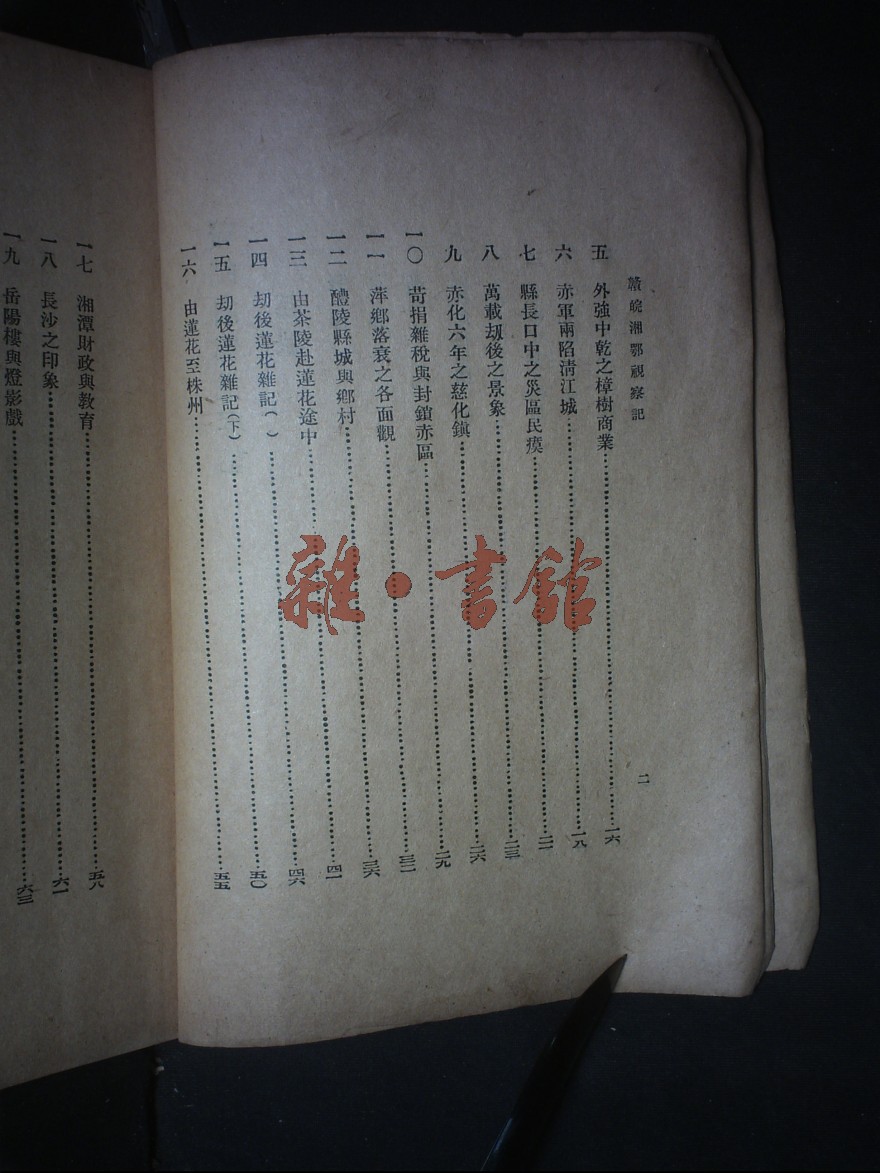 贛皖湘鄂視察記
二
五 外強中乾之樟樹商業……一六
六 赤軍兩陷淸江城……一八
七 縣長口中之災區民瘼……二一
八 萬載刼後之景象……二三
九 赤化六年之慈化鎮……二六
一〇 苛捐雜稅與封鎖赤區……二九
一一 萍鄉落衰之各面觀……三二
一二 醴陵縣城與鄉村……三六
一三 由茶陵赴蓮花途中……四一
一四 刼後蓮花雜記( )……四六
一五 刼後蓮花雜記(下)……五〇
一六 由蓮花至株州……五五
一七 湘潭財政與教育……五八
一八 長沙之印象……六一
一九 岳陽樓與燈影戲……六三
雜·書館